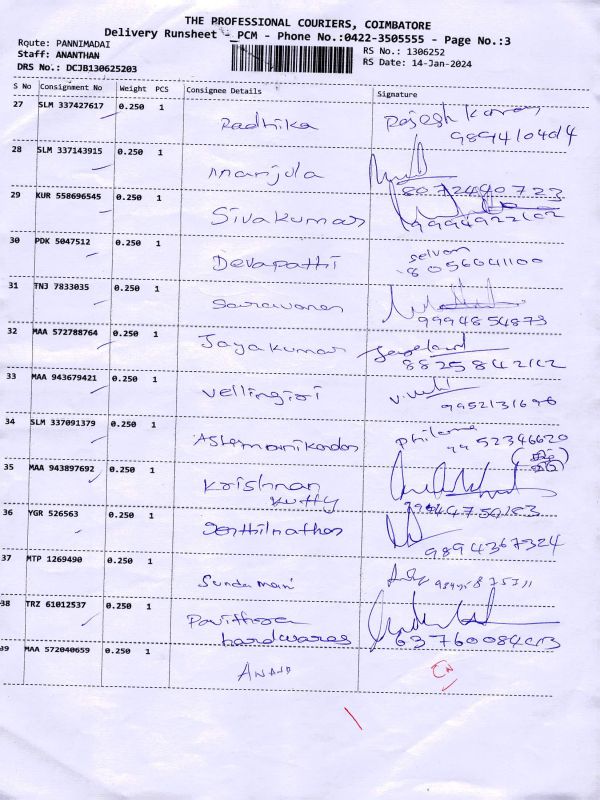 THE PROFESSIONAL COURIERS, COIMBATORE
Delivery Runsheet _PCM - Phone No.:0422-3505555 - Page No.:3
Route: PANNIMADAI
Staff: ANANTHAN
DRS No.: DCJB130625203
RS No.: 1306252
RS Date: 14-Jan-2024
S No Consignment No Weight PCS Consignee Details Signature
27 SLM 337427617 0.250 1 Radhika Rajesh Kumar
28 SLM 337143915 0.250 1 Manjula
8072490723
29 KUR 558696545 0.250 1 Sivakumar
30 PDK 5047512 0.250 1 Devapathi Selvam
8056041100
31 TNJ 7833035 0.250 1 Saravanan
9994854873
32 MAA 572788764 0.250 1 Jayakumar
8825842142
33 MAA 943679421 0.250 1 Vellingiri
9952131696
34 SLM 337091379 0.250 1 Philema
9952346620
35 MAA 943897692 0.250 1 Krishnan
Kutty
36 YGR 526563 0.250 1 Senthilnathan
9894367324
37 MTP 1269490 0.250 1 Sundamani
38 TRZ 61012537 0.250 1 Pavithra
hardwares
39 MAA 572040659 0.250 1 ANAND